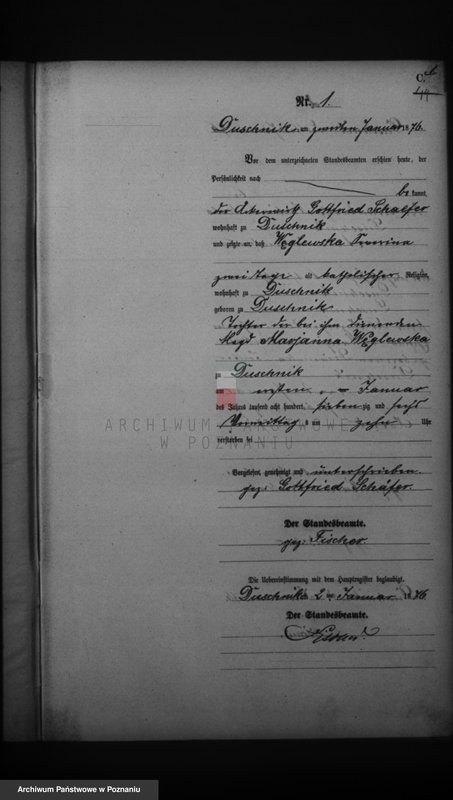 C. A
44
Nr. 1.
Duschnik am zweiten Januar 1876.
Vor dem unterzeichneten Standesbeamten erschien heute, der
Persönlichkeit nach
be kannt,
der Ackerwirth Gottfried Schaefer
wohnhaft zu Duschnik
und zeigte an, daß Węglewska Severina
zwei Tage alt katholischer Religion,
wohnhaft zu Duschnik
geboren zu Duschnik
Tochter der bei ihm dienenden
Magd Marjanna Węglewska
zu Duschnik
am ersten Januar
des Jahres tausend acht hundert sieben zig und sechs
Vormittag s um zehn Uhr
verstorben sei
Vorgelesen, genehmigt und unterschrieben
gez: Gottfried Schäfer.
Der Standesbeamte.
gez: Fischer
Die Uebereinstimmung mit dem Hauptregister beglaubigt.
Duschnik am 2 ten Januar 1876
Der Standesbeamte.
Fischer
ARCHIWUM PAŃSTWOWE
W POZNANIU
Archiwum Państwowe w Poznaniu